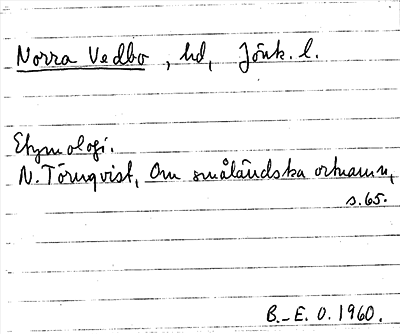 Norra Vedbo, hd, Jönk. l.
Etymologi.
N. Törnqvist, Om småländska ortnamn,
s. 65.
B.-E. O. 1960.